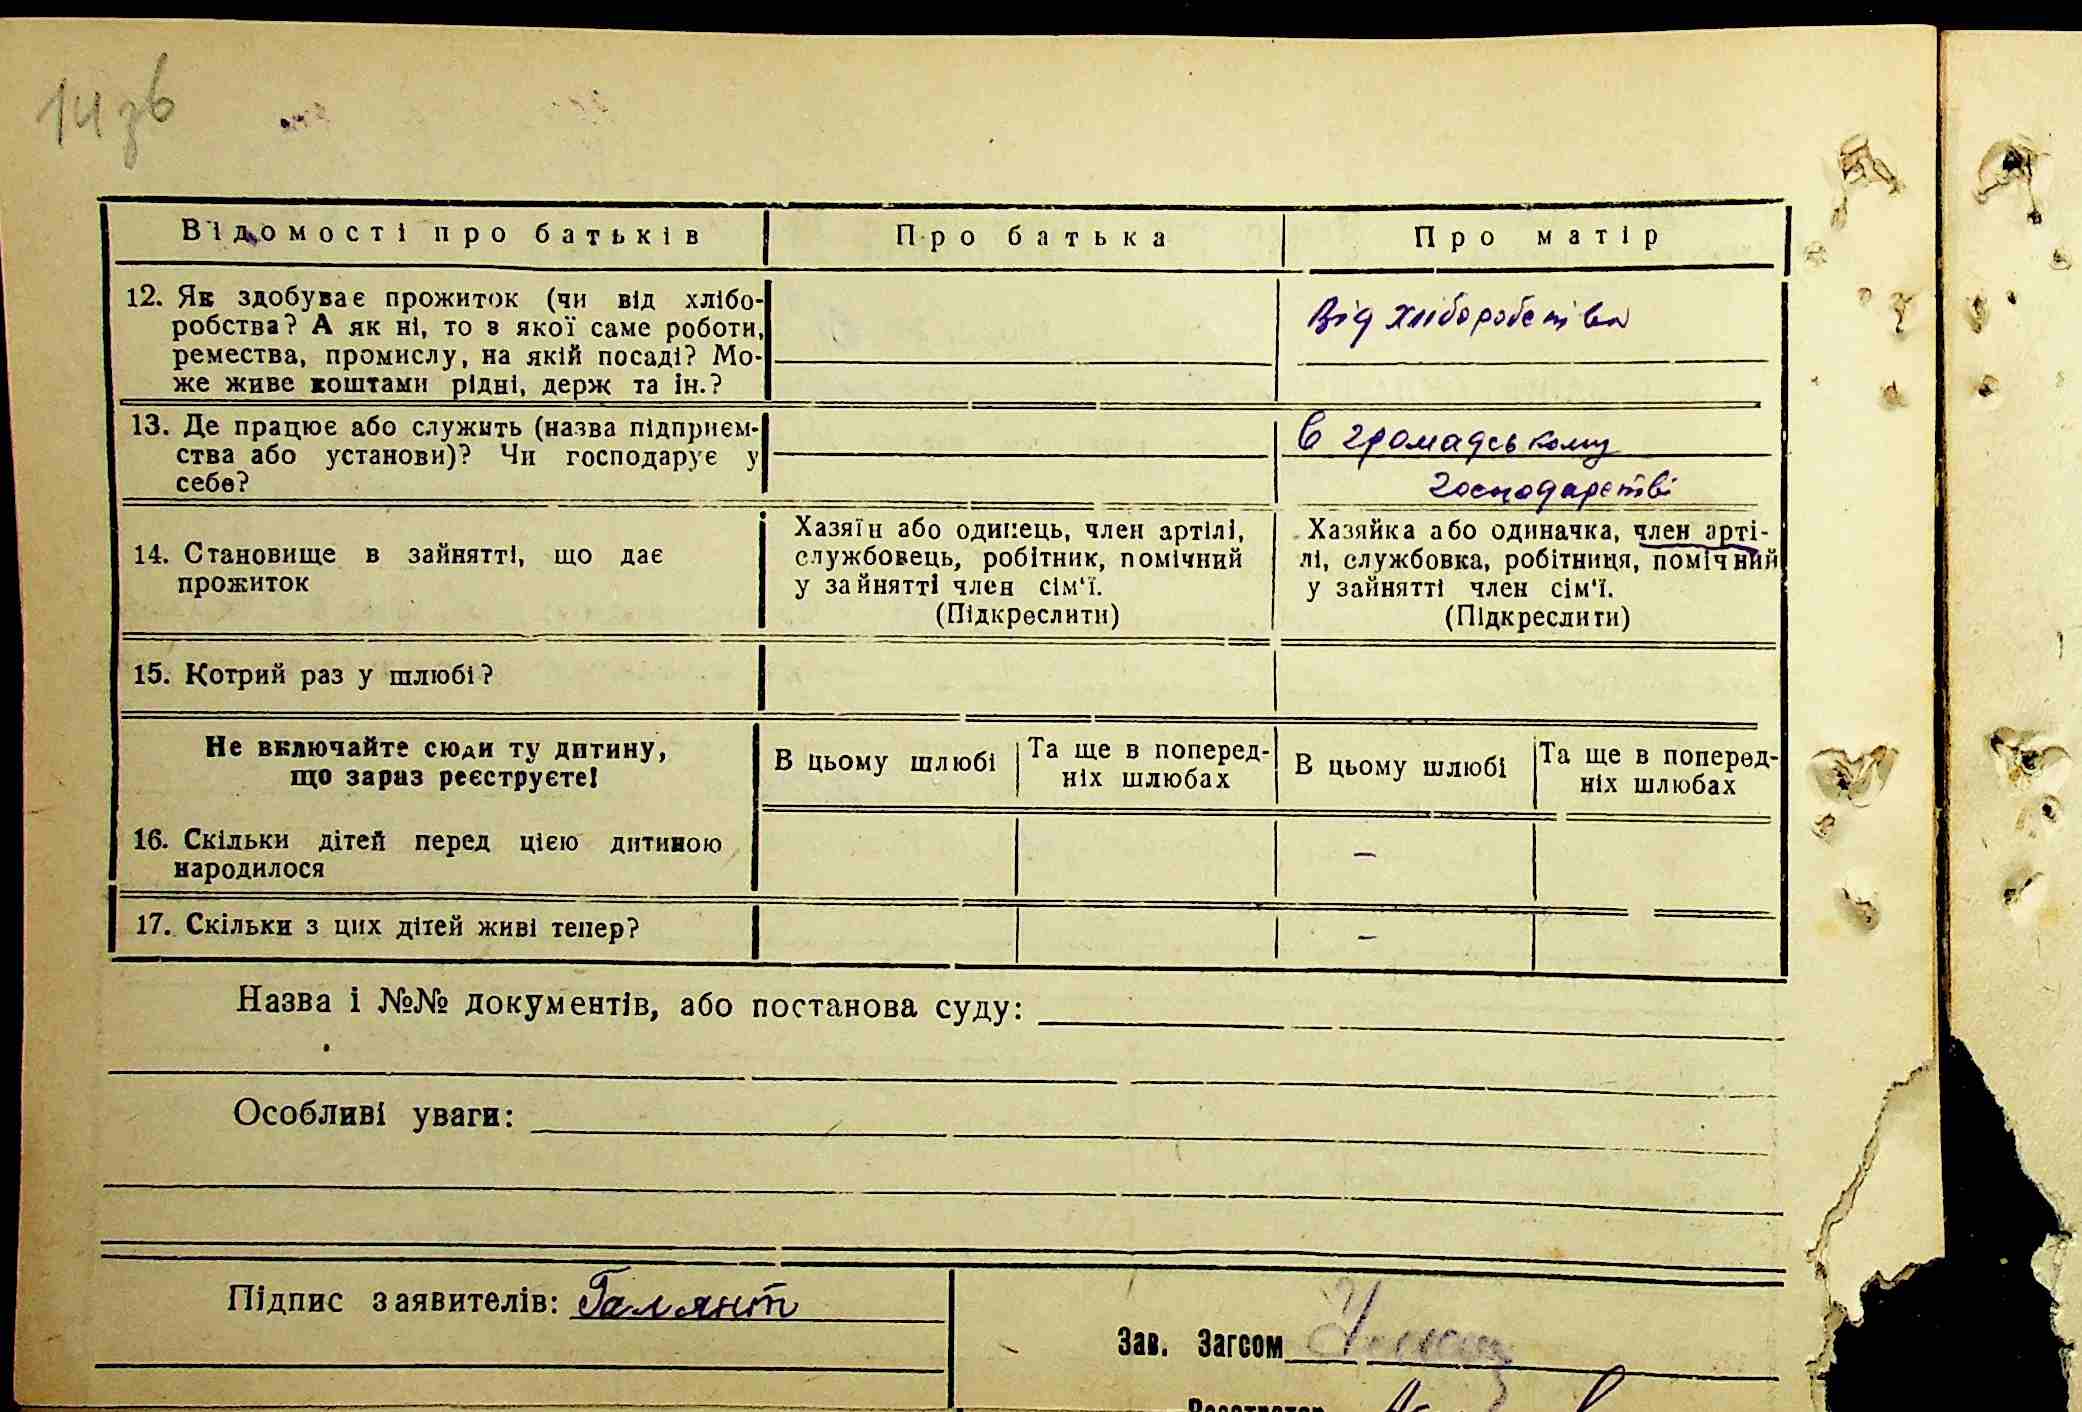 14 зв
Відомості про батьків
Про батька
Про матір
12. Як здобуває прожиток (чи від хлібо-
робства? А як ні, то з якої саме роботи,
ремества, промислу, на якій посаді? Мо-
же живе коштами рідні, держ та ін.?
Від хліборобства
13. Де працює або служить (назва підприєм-
ства або установи)? Чи господарує у
себе?
в громадському
господарстві
14. Становище в зайнятті, що дає
прожиток
Хазяїн або одинець, член артілі,
службовець, робітник, помічний
у зайнятті член сім'ї.
(Підкреслити)
Хазяйка або одиначка, член арті-
лі, службовка, робітниця, помічний
у зайнятті член сім'ї.
(Підкреслити)
15. Котрий раз у шлюбі?
Не включайте сюди ту дитину,
що зараз реєструєте!
В цьому шлюбі
Та ще в поперед-
ніх шлюбах
В цьому шлюбі
Та ще в поперед-
ніх шлюбах
16. Скільки дітей перед цією дитиною
народилося
–
17. Скільки з цих дітей живі тепер?
–
Назва і №№ документів, або постанова суду:
Особливі уваги:
Підпис заявителів: Галянт
Зав. Загсом
Реєстратор